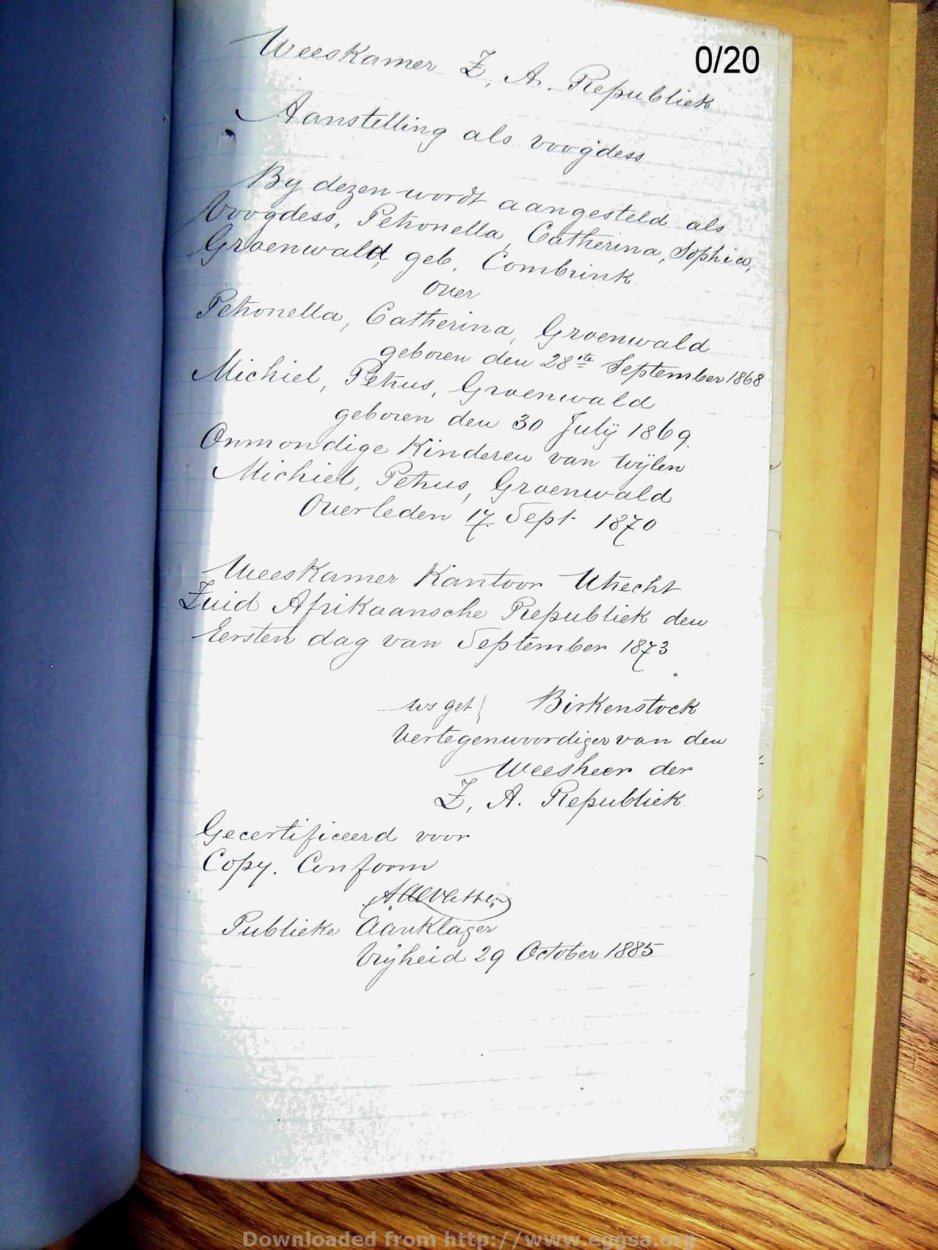 0/20
WeesKamer Z, A. Republiek
Aanstelling als voogdess
By dezen wordt aangesteld als
Voogdess, Petronella, Catherina, Sophia,
Groenwald, geb. Combrink
over
Petronella, Catherina, Groenwald
geboren den 28ste September 1868
Michiel, Petrus, Groenwald
geboren den 30 July 1869
Onmondige Kinderen van wijlen
Michiel, Petrus, Groenwald
Overleden 17 Sept 1870
WeesKamer Kantoor Utrecht
Zuid Afrikaansche Republiek den
Eersten dag van September 1873
get Birkenstock
Vertegenwoordiger van den
Weesheer der
Z, A. Republiek
Gecertificeerd voor
Copy. Conform
Publieke Aanklager
Vrijheid 29 October 1885
Downloaded from http://www.eggsa.org